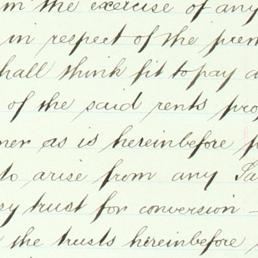 in the exercise of any
in respect of the prem
hall think fit to pay a
of the said rents pro
ner as is hereinbefore p
to arise from any Sa
sy trust for conversion -
the trusts hereinbefore